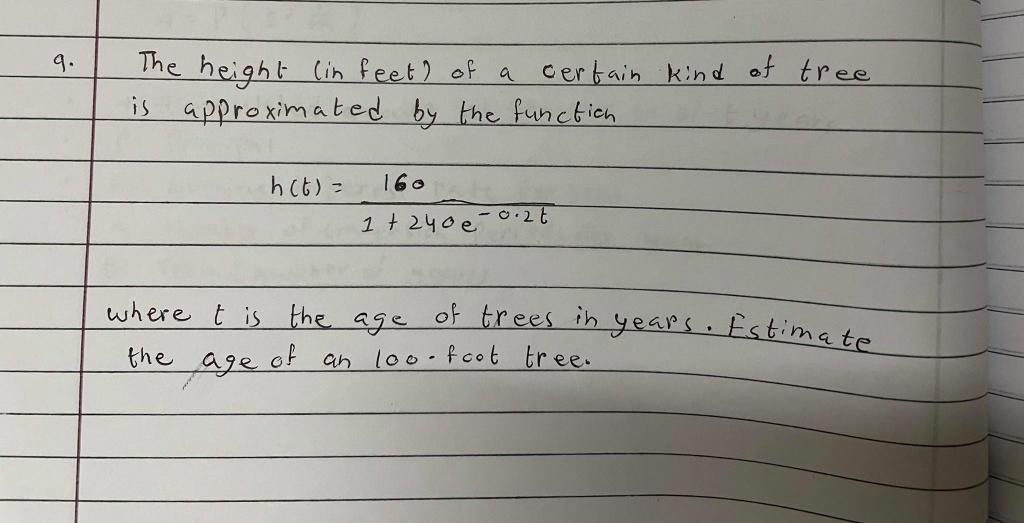 9. The height (in feet) of a certain kind of tree
is approximated by the function
h(t) = 160
1 + 240e^-0.2t
where t is the age of trees in years. Estimate
the age of an 100-foot tree.